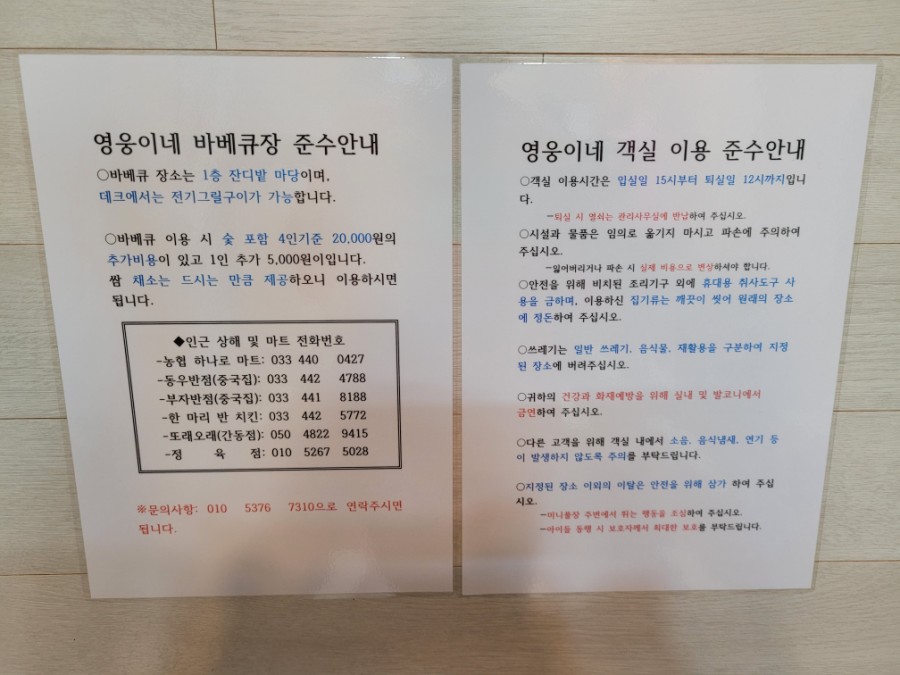 영웅이네 바베큐장 준수안내
○바베큐 장소는 1층 잔디밭 마당이며,
데크에서는 전기그릴구이가 가능합니다.
○바베큐 이용 시 숯 포함 4인기준 20,000원의
추가비용이 있고 1인 추가 5,000원이입니다.
쌈 채소는 드시는 만큼 제공하오니 이용하시면
됩니다.
◆인근 상해 및 마트 전화번호
-농협 하나로 마트: 033 440 0427
-동우반점(중국집): 033 442 4788
-부자반점(중국집): 033 441 8188
-한 마리 반 치킨: 033 442 5772
-또래오래(간동점): 050 4822 9415
-정 육 점: 010 5267 5028
※문의사항: 010 5376 7310으로 연락주시면
됩니다.
영웅이네 객실 이용 준수안내
○객실 이용시간은 입실일 15시부터 퇴실일 12시까지입니
다.
-퇴실 시 열쇠는 관리사무실에 반납하여 주십시오.
○시설과 물품은 임의로 옮기지 마시고 파손에 주의하여
주십시오.
-잃어버리거나 파손 시 실제 비용으로 변상하셔야 합니다.
○안전을 위해 비치된 조리기구 외에 휴대용 취사도구 사
용을 금하며, 이용하신 집기류는 깨끗이 씻어 원래의 장소
에 정돈하여 주십시오.
○쓰레기는 일반 쓰레기, 음식물, 재활용을 구분하여 지정
된 장소에 버려주십시오.
○귀하의 건강과 화재예방을 위해 실내 및 발코니에서
금연하여 주십시오.
○다른 고객을 위해 객실 내에서 소음, 음식냄새, 연기 등
이 발생하지 않도록 주의를 부탁드립니다.
○지정된 장소 이외의 이탈은 안전을 위해 삼가 하여 주십
시오.
-미니풀장 주변에서 뛰는 행동을 조심하여 주십시오.
-아이들 동행 시 보호자께서 최대한 보호를 부탁드립니다.